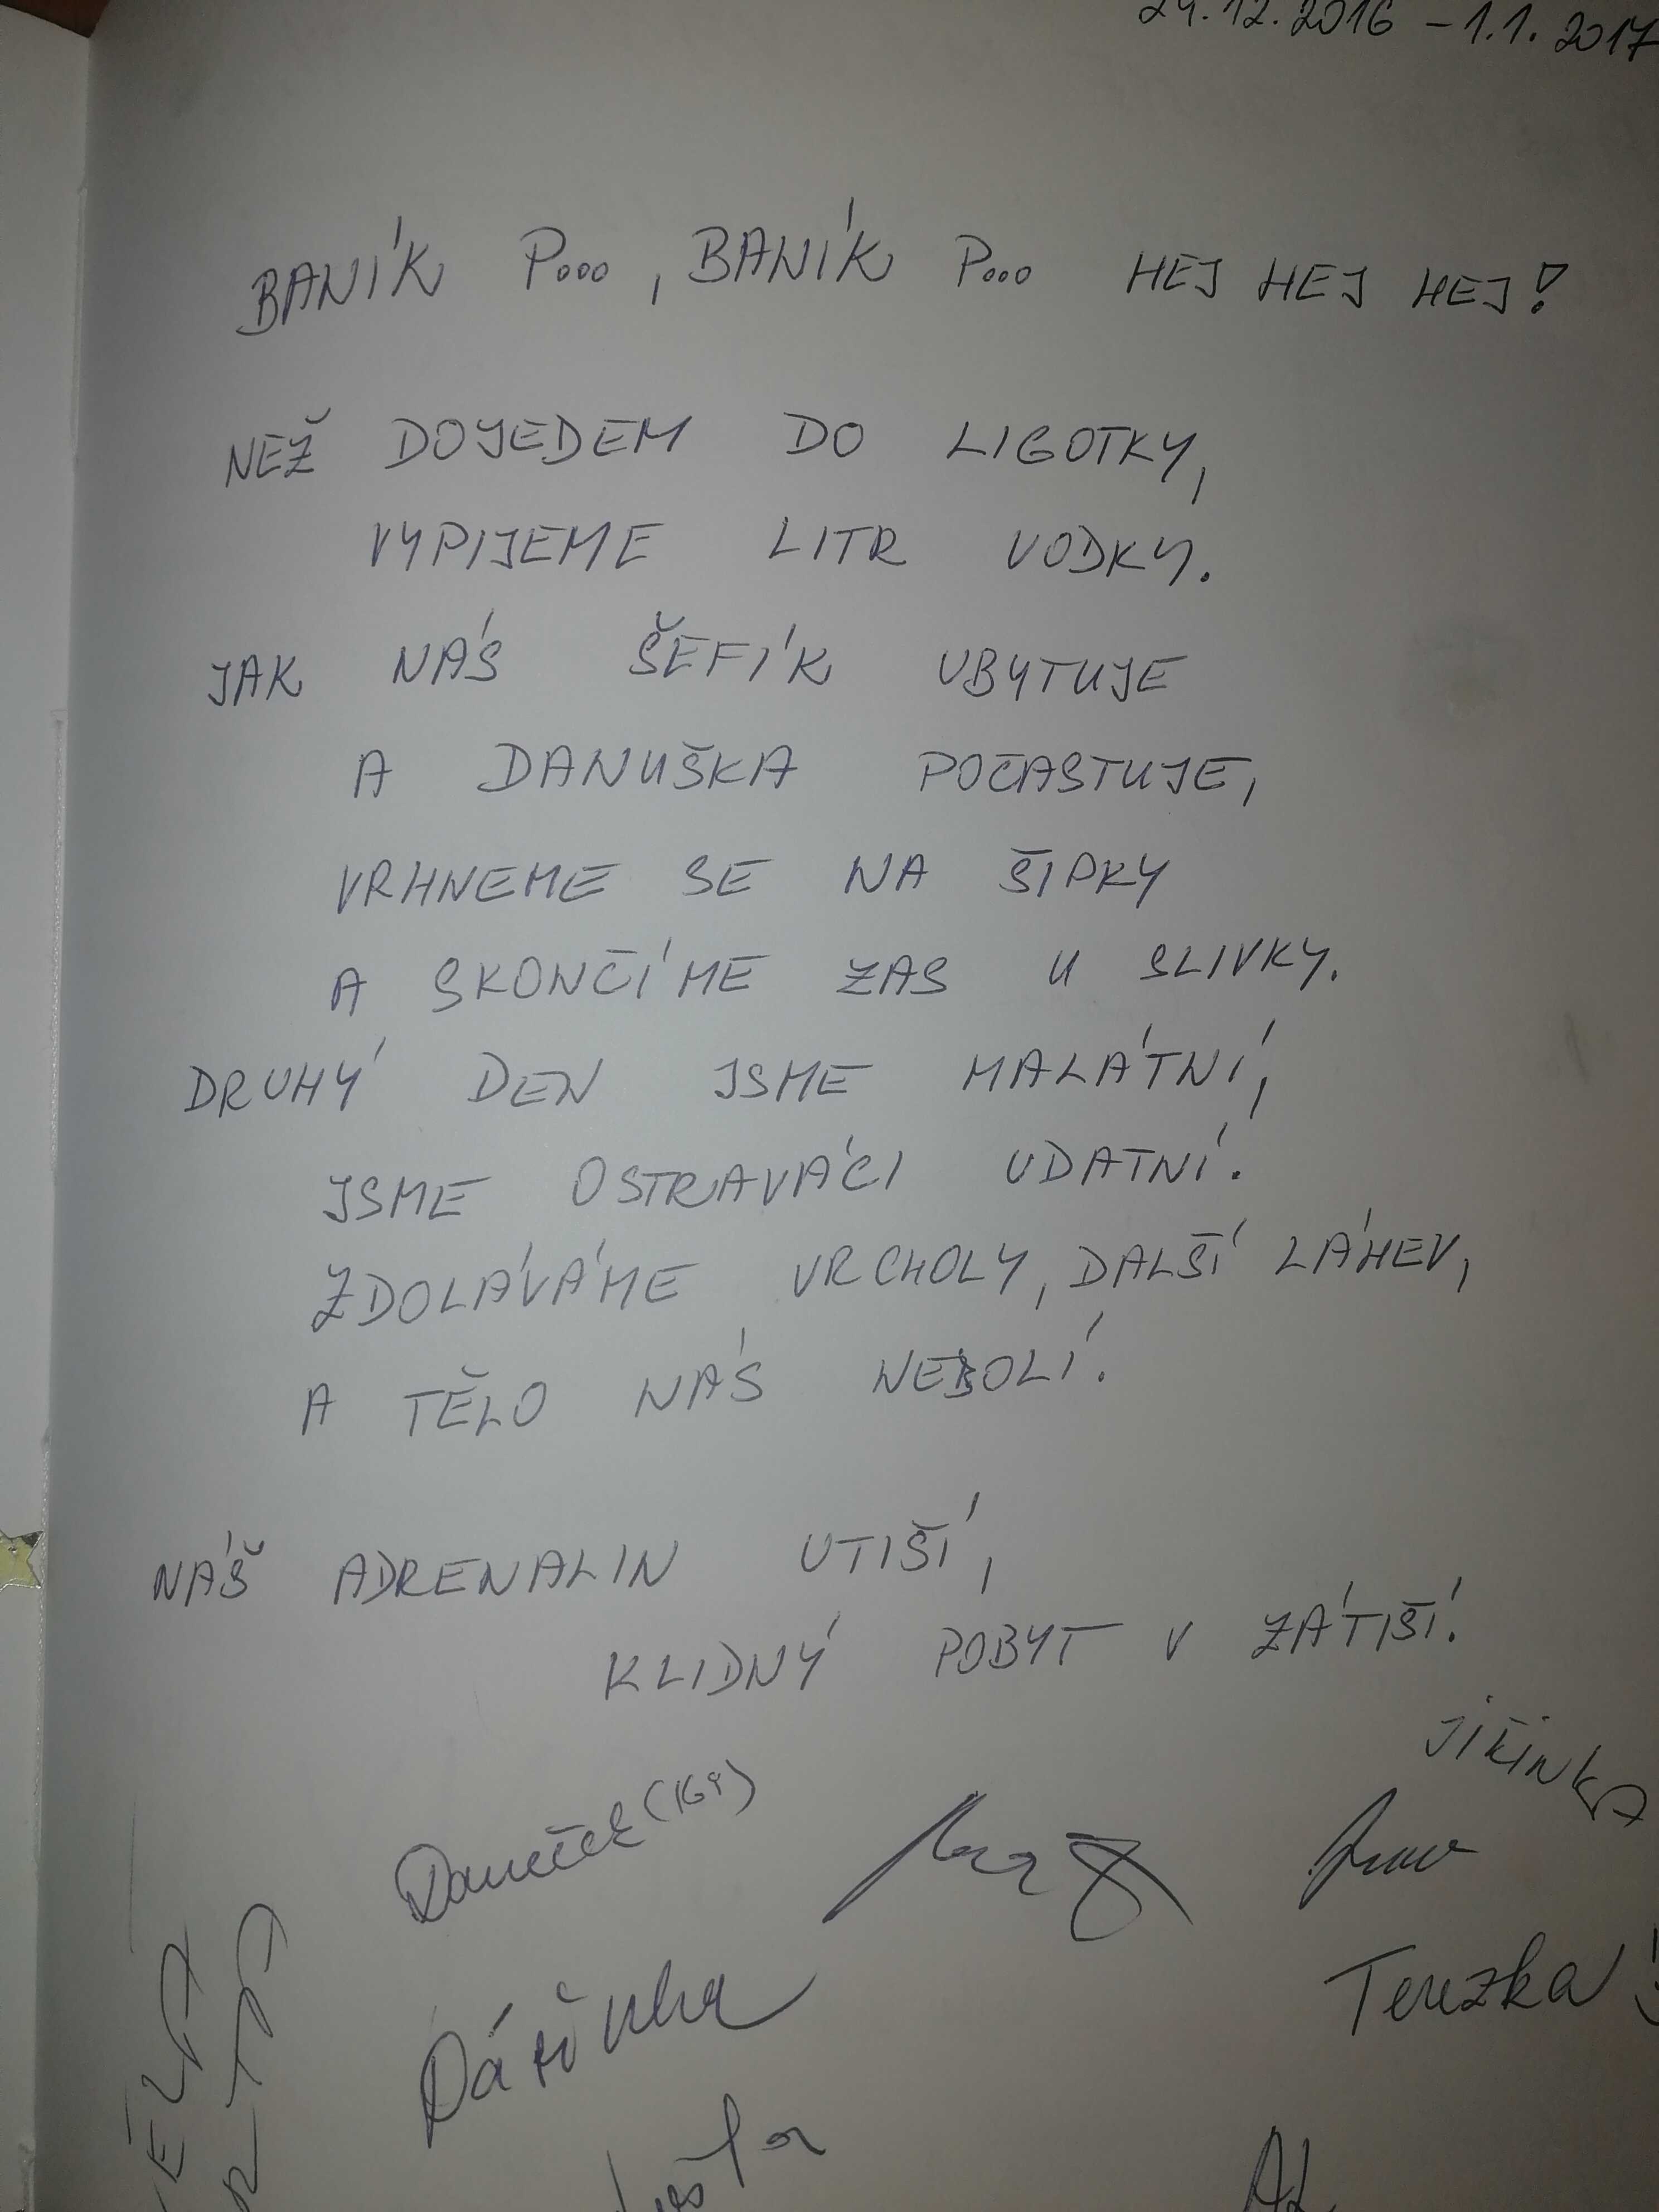 29.12.2016 - 1.1.2017
BANÍK P... , BANÍK P... HEJ HEJ HEJ!
NEŽ DOJEDEM DO LIGOTKY,
VYPIJEME LITR VODKY.
JAK NÁS ŠEFÍK UBYTUJE
A DANUŠKA POČASTUJE,
VRHNEME SE NA ŠIPKY
A SKONČÍME ZAS U SLIVKY.
DRUHÝ DEN JSME MALÁTNÍ,
JSME OSTRAVÁCI UDATNÍ.
ZDOLÁVÁME VRCHOLY, DALŠÍ LÁHEV,
A TĚLO NÁS NEBOLÍ.
NÁŠ ADRENALIN UTIŠÍ,
KLIDNÝ POBYT V ZÁTIŠÍ.
JIŘINKA
Daneček
Terezka